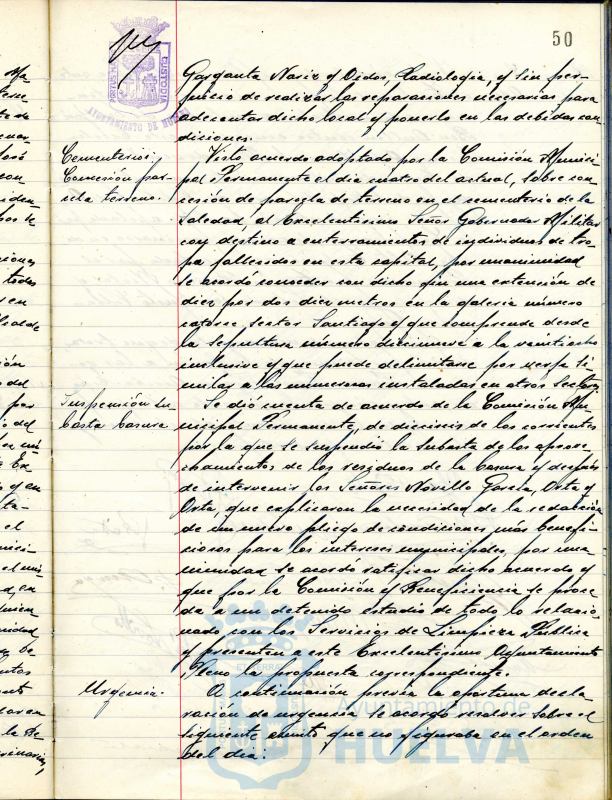 50
AYUNTAMIENTO DE HUELVA
Garganta Nariz y Oidos, Radiología, y sin per-
juicio de realizar las reparaciones necesarias para
adecentar dicho local y ponerlo en las debidas con-
diciones.
Cementerios.
Concesión par-
cela terreno.
Visto acuerdo adoptado por la Comisión Munici-
pal Permanente el dia cuatro del actual, sobre con-
cesión de parcela de terreno en el cementerio de la
Soledad, al Excelentisimo Señor Gobernador Militar
con destino a enterramientos de individuos de tro-
pa fallecidos en esta capital, por unanimidad
se acordó conceder con dicho fin una extensión de
diez por dos diez metros en la galeria número
catorse, sector Santiago y que comprende desde
la sepultura número diecinueve a la veintiocho
inclusive y que puede delimitarse por verja si-
milar a las numerosas instaladas en otros sectores
Suspensión su-
basta basura
Se dió cuenta de acuerdo de la Comisión Mu-
nicipal Permanente, de dieciseis de los corrientes
por la que se suspendió la subasta de los aprove-
chamientos de los residuos de la basura y después
de intervenir los Señores Novillo García, Orta y
Orta, que explicaron la necesidad de la redacción
de un nuevo pliego de condiciones más benefi-
ciosas para los intereses municipales, por una-
nimidad se acordó ratificar dicho acuerdo y
que por la Comisión y Beneficiencia se proce-
da a un detenido estudio de todo lo relacio-
nado con los Servicios de Limpieza Publica
y presenten a este Excelentisimo Ayuntamiento
Pleno la propuesta correspondiente.
Urgencia.
A continuación previa la oportuna decla-
ración de urgencia se acordó resolver sobre el
siguiente asunto que no figuraba en el orden
del dia:
Ayuntamiento de
HUELVA